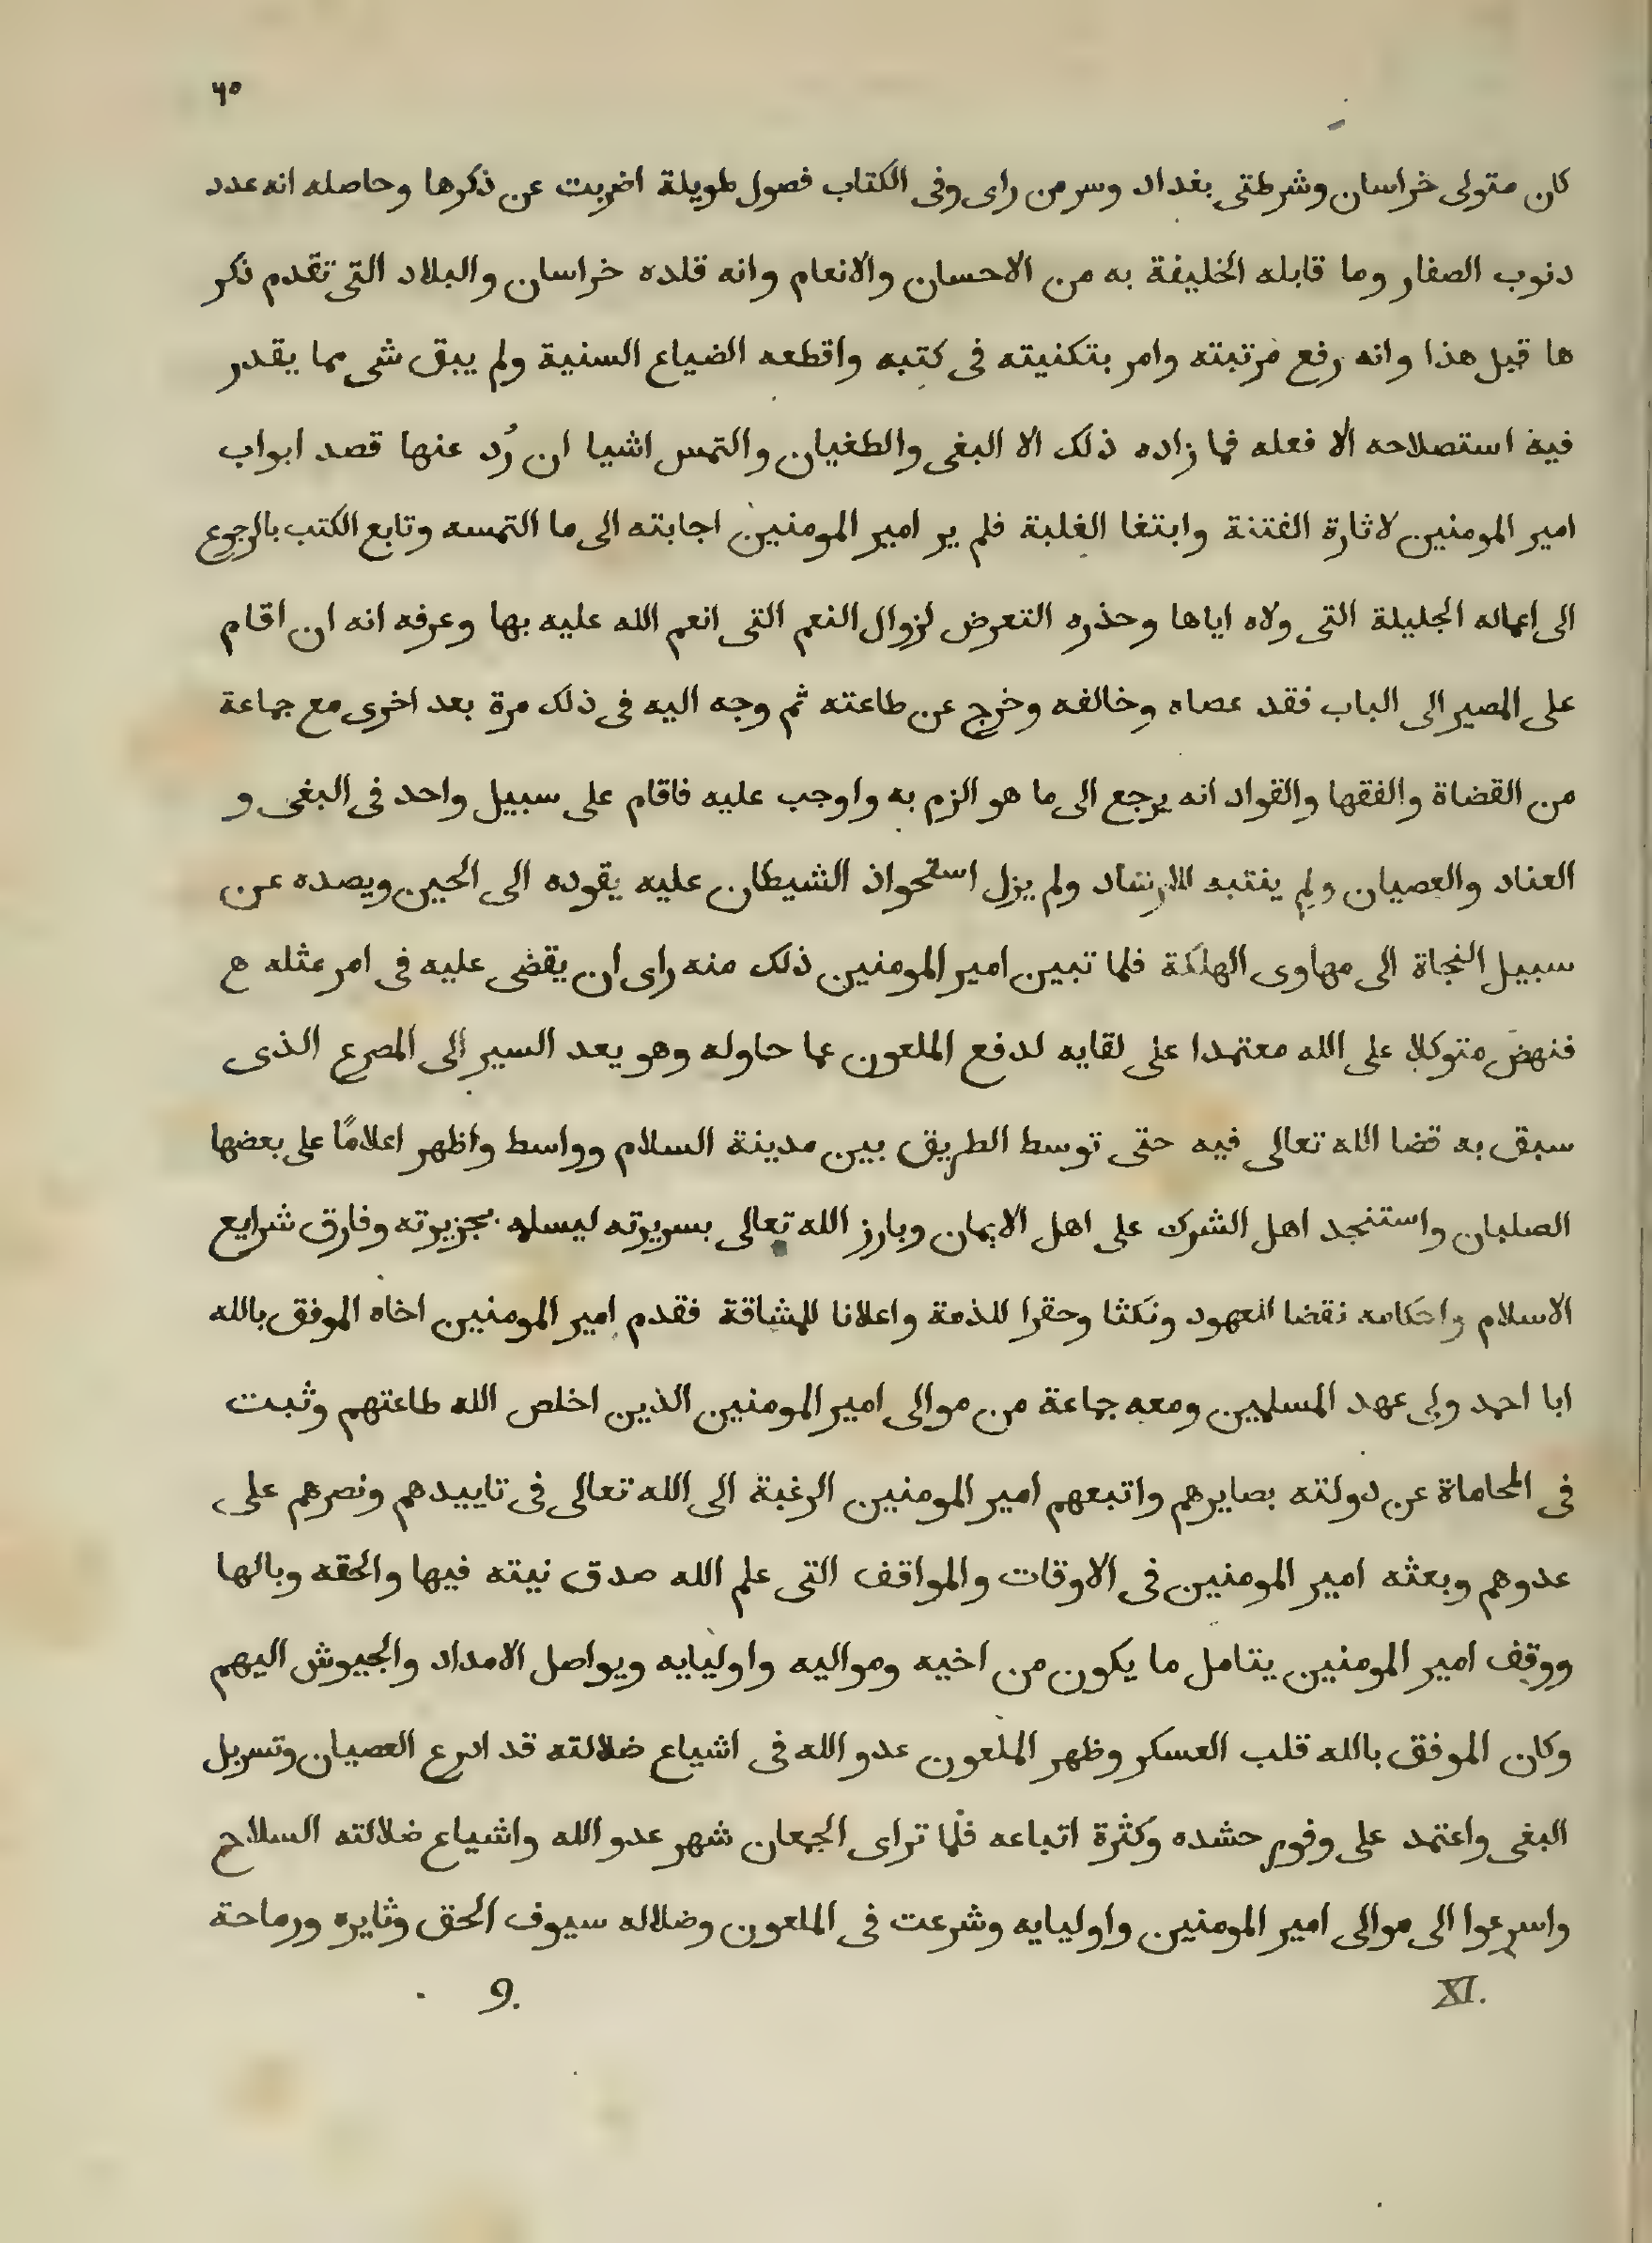 ٦٥
كان متولى خراسان وشرطتى بغداد وسر من راى وفى الكتاب فصول طويلة اضربت عن ذكرها وحاصله انه عدد
دنوب الصفار وما قابله الخليفة به من الاحسان والانعام وانه قلده خراسان والبلاد التى تقدم ذكر
ها قبل هذا وانه رفع مرتبته وامر بتكنيته فى كتبه واقطعه الضياع السنية ولم يبق شى مما يقدر
فيه استصلاحه الا فعله فما زاده ذلك الا البغى والطغيان والتمس اشيا ان رُد عنها قصد ابواب
امير المومنين لاثارة الفتنة وابتغا الغلبة فلم ير امير المومنين اجابته الى ما التمسه وتابع الكتب بالرجوع
الى اعماله الجليلة التى ولاه اياها وحذره التعرض لزوال النعم التى انعم الله عليه بها وعرفه انه ان اقام
على المصير الى الباب فقد عصاه وخالفه وخرج عن طاعته ثم وجه اليه فى ذلك مرة بعد اخرى مع جماعة
من القضاة والفقها والقواد انه يرجع الى ما هو الزم به واوجب عليه فاقام على سبيل واحد فى البغى و
العناد والعصيان ولم ينتبه للارشاد ولم يزل استحواذ الشيطان عليه يقوده الى الحين ويصده عن
سبيل النجاة الى مهاوى الهلكة فلما تبين امير المومنين ذلك منه راى ان يقضى عليه فى امر مثله
فنهض متوكلا على الله معتمدا على لقايه لدفع الملعون عما حاوله وهو يعد السير الى المصرع الذى
سبق به قضا الله تعالى فيه حتى توسط الطريق بين مدينة السلام وواسط واظهر اعلامًا على بعضها
الصلبان واستنجد اهل الشرك على اهل الايمان وبارز الله تعالى بسريرته ليسلمه بجزيرته وفارق شرايع
الاسلام واحكامه نقضا للعهود ونكثا وحقرا للذمة واعلانا للمشاقة فقدم امير المومنين اخاه الموفق بالله
ابا احمد ولى عهد المسلمين ومعه جماعة من موالى امير المومنين الذين اخلص الله طاعتهم وثبت
فى المحاماة عن دولته بصايرهم واتبعهم امير المومنين الرغبة الى الله تعالى فى تاييدهم ونصرهم على
عدوهم وبعثه امير المومنين فى الاوقات والمواقف التى علم الله صدق نيته فيها والحقه وبالها
ووقف امير المومنين يتامل ما يكون من اخيه ومواليه واوليايه ويواصل الامداد والجيوش اليهم
وكان الموفق بالله قلب العسكر وظهر الملعون عدو الله فى اشياع ضلالته قد ادرع العصيان وتسربل
البغى واعتمد على وفور حشده وكثرة اتباعه فلما تراى الجمعان شهر عدو الله واشياع ضلالته السلاح
واسرعوا الى موالى امير المومنين واوليايه وشرعت فى الملعون وضلاله سيوف الحق وثايره ورماحة
XI. 9.